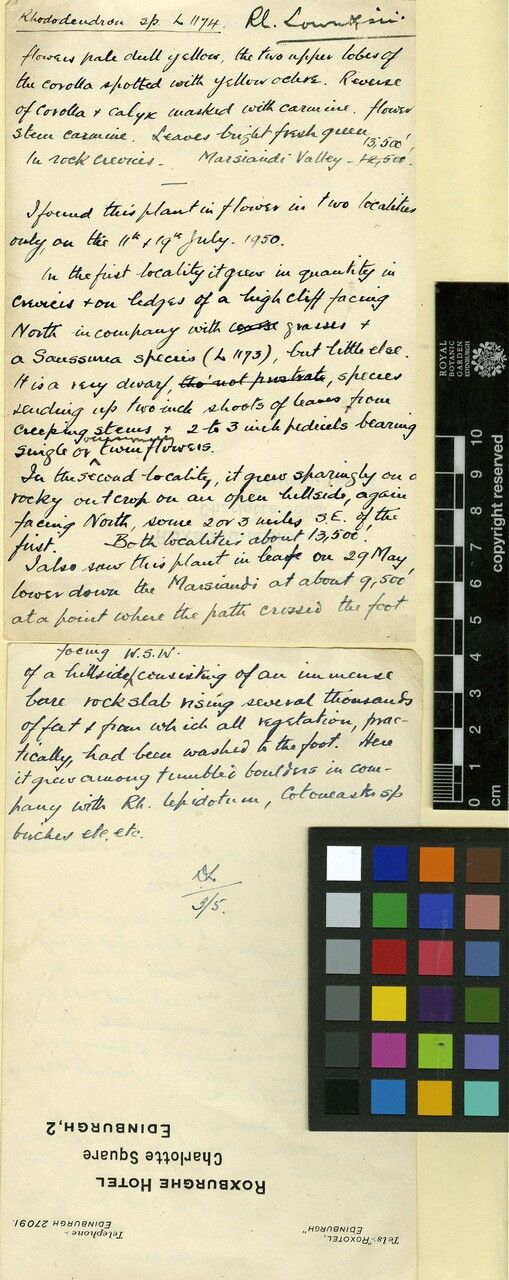 Rhododendron sp. L 1174. Rh. Lowndesii.
flowers pale dull yellow, the two upper lobes of
the corolla spotted with yellow ochre. Reverse
of corolla & calyx masked with carmine. flower
stem carmine. Leaves bright fresh green
13,500'
In rock crevices - Marsiandi Valley - 12,500'.
I found this plant in flower in two localities
only, on the 11th & 19th July. 1950.
In the first locality it grew in quantity in
crevices & on ledges of a high cliff facing
North in company with coarse grasses &
a Saussurea species (L 1173), but little else.
It is a very dwarf, tho' not prostrate, species
sending up two inch shoots of leaves from
creeping stems & 2 to 3 inch pedicels bearing
single or twin flowers.
In the second locality, it grew sparingly on a
rocky outcrop on an open hillside, again
facing North, some 2 or 3 miles S.E. of the
first. Both localities about 13,500'.
I also saw this plant in leaf on 29 May
lower down the Marsiandi at about 9,500'
at a point where the path crossed the foot
facing W.S.W.
of a hillside consisting of an immense
bare rock slab rising several thousands
of feet & from which all vegetation, prac-
tically, had been washed to the foot. Here
it grew among tumbled boulders in com-
pany with Rh. lepidotum, Cotoneaster sp
birches etc. etc.
DL
3/5.
ROXBURGHE HOTEL
Charlotte Square
EDINBURGH, 2
Tels:- "ROXOTEL,
EDINBURGH"
Telephone:-
EDINBURGH 27091.
ROYAL
BOTANIC
GARDEN
EDINBURGH
copyright reserved
0 1 2 3 4 5 6 7 8 9 10
cm